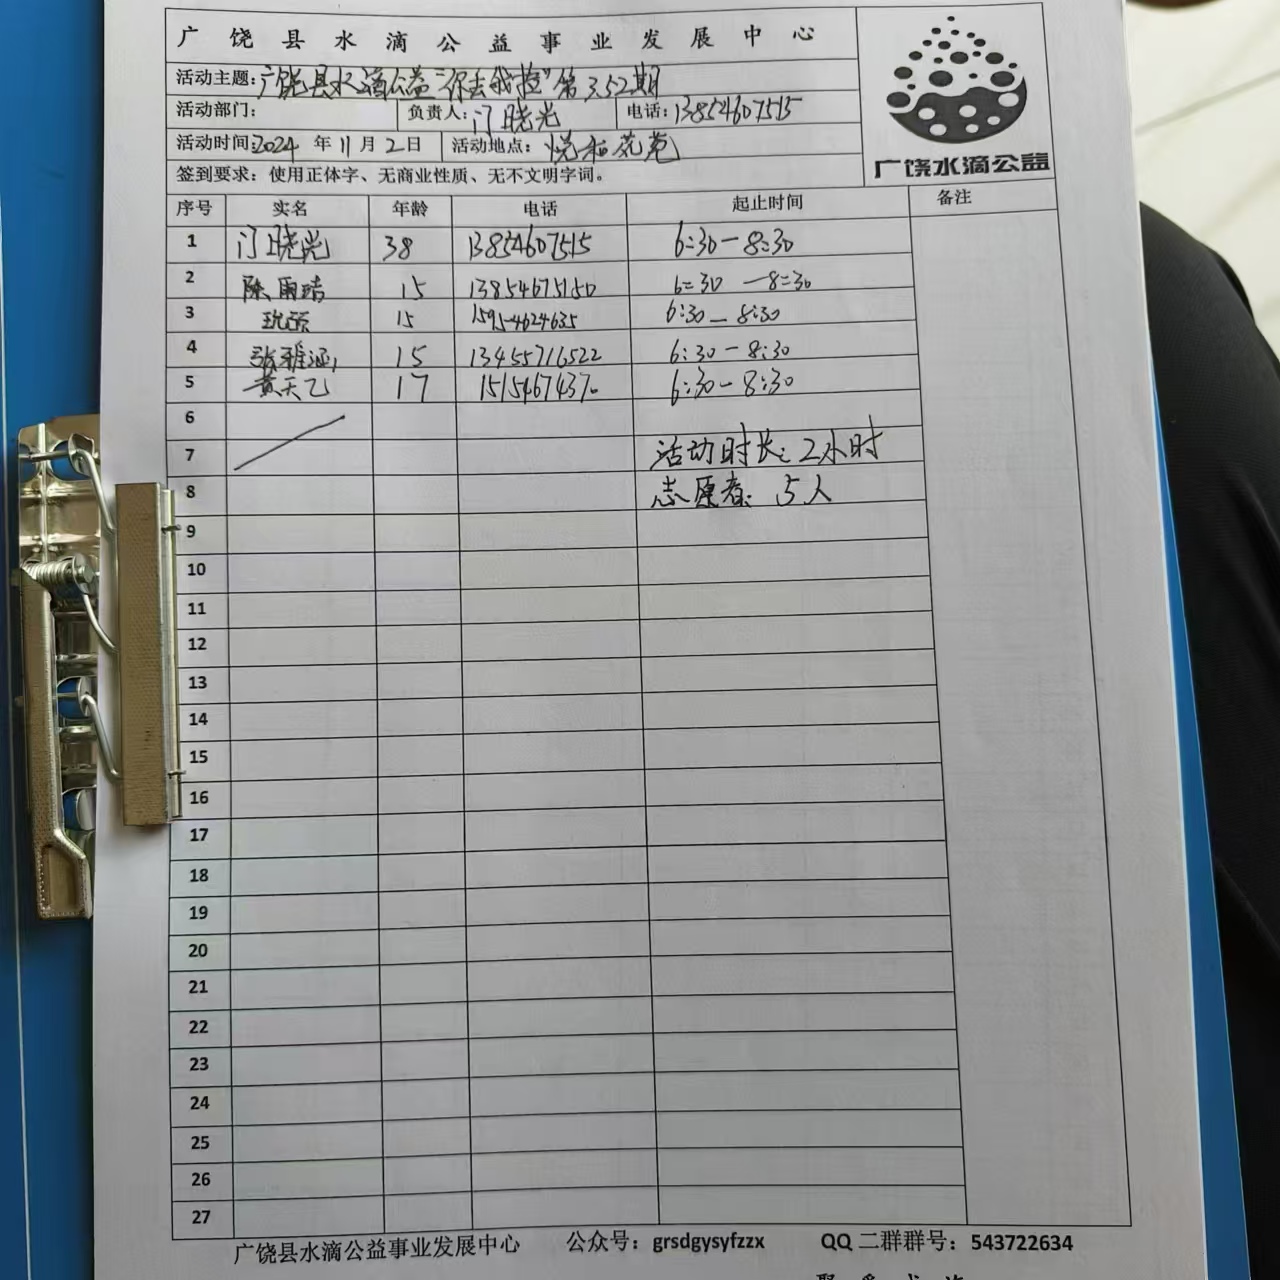 广饶县水滴公益事业发展中心
活动主题:广饶县水滴公益“你丢我捡”第352期
活动部门: 负责人:门晓光 电话:13854607515
活动时间:2024年11月2日 活动地点:悦和苑
签到要求：使用正体字、无商业性质、无不文明字词。
广饶水滴公益
序号 实名 年龄 电话 起止时间 备注
1 门晓光 38 13854607515 6:30-8:30
2 陈雨婧 15 13854675150 6:30-8:30
3 15 15954624635 6:30-8:30
4 张雅涵 15 13455716522 6:30-8:30
5 黄天乙 17 6:30-8:30
6
7 活动时长：2小时
8 志愿者：5人
9
10
11
12
13
14
15
16
17
18
19
20
21
22
23
24
25
26
27
广饶县水滴公益事业发展中心 公众号：grsdgysyfzzx QQ二群群号：543722634